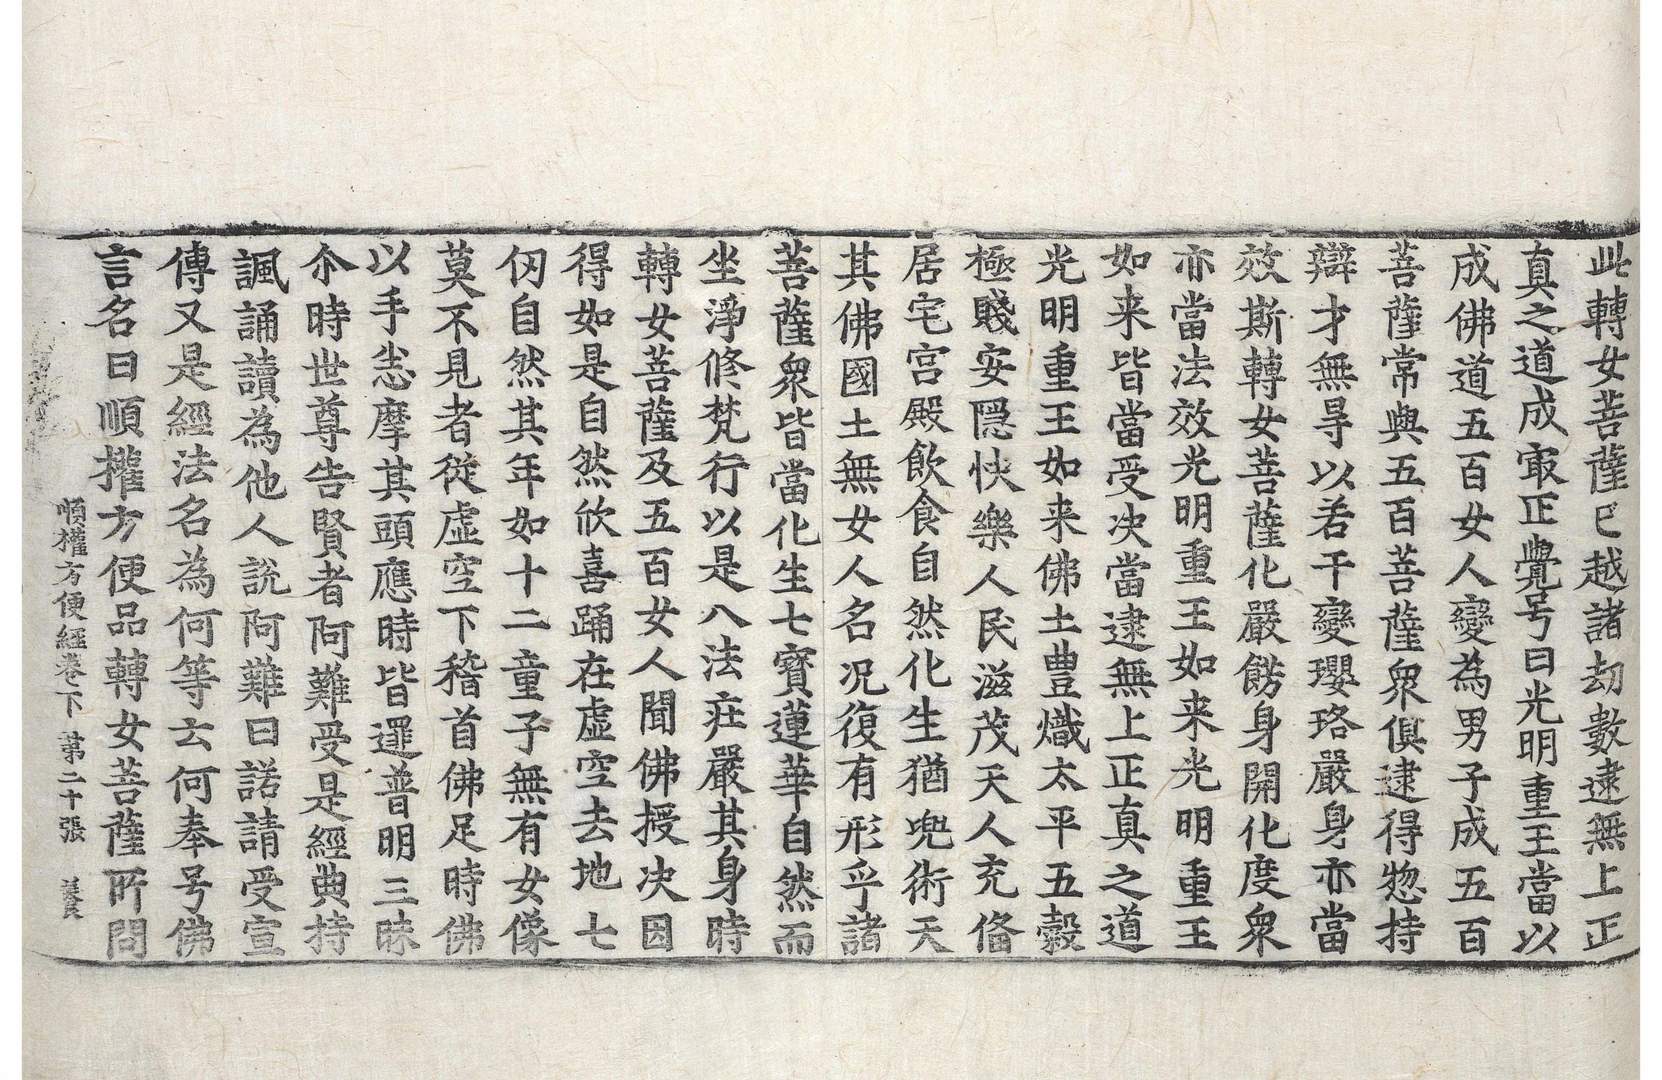 此轉女菩薩已越諸劫數逮無上正
真之道成㝡正覺号曰光明重王當以
成佛道五百女人變為男子成五百
菩薩常與五百菩薩衆俱逮得惣持
辯才無㝵以若干變瓔珞嚴身亦當
效斯轉女菩薩化嚴餝身開化度衆
亦當法效光明重王如来光明重王
如来皆當受决當逮無上正真之道
光明重王如来佛土豊熾太平五穀
極賤安隠快樂人民滋茂天人充俻
居宅宫殿飲食自然化生猶兜術天
其佛國土無女人名况復有形乎諸
菩薩衆皆當化生七寳蓮華自然而
坐淨修梵行以是八法莊嚴其身時
轉女菩薩及五百女人聞佛授决因
得如是自然欣喜踊在虚空去地七
仞自然其年如十二童子無有女像
莫不見者從虚空下稽首佛足時佛
以手㤀摩其頭應時皆逮普明三昧
尒時世尊告賢者阿難受是經典持
諷誦讀為他人說阿難曰諾請受宣
傳又是經法名為何等云何奉号佛
言名曰順權方便品轉女菩薩所問
順權方便經卷下 第二十張 養